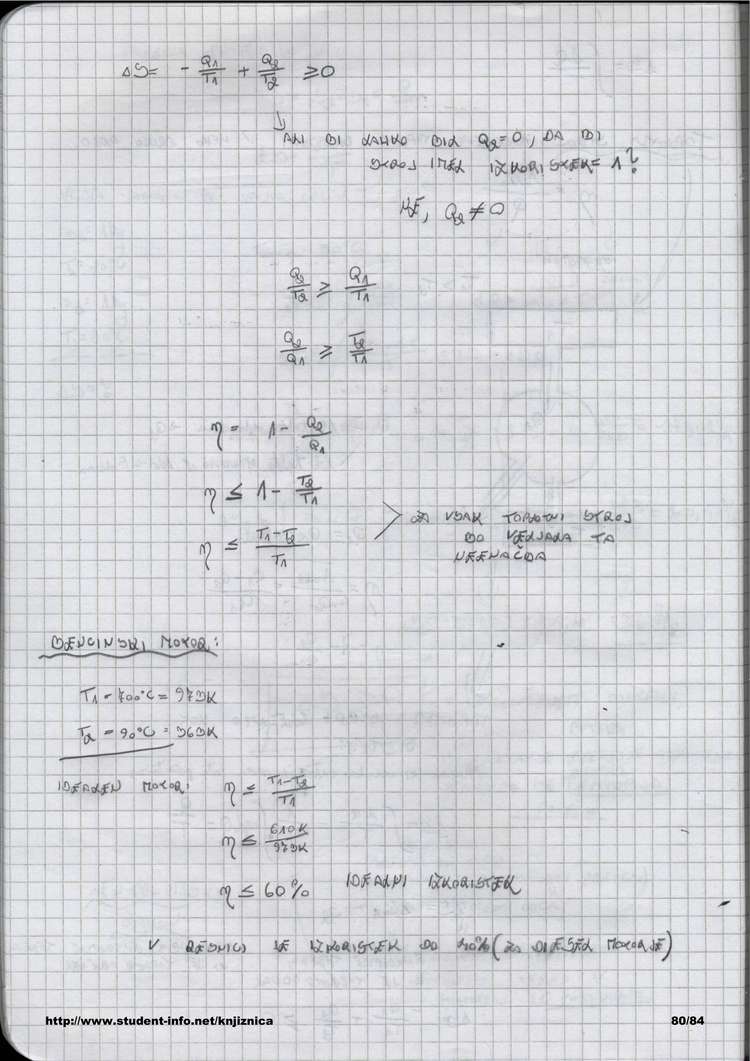 ΔS= - Q1/T1 + Q2/T2 ≥0
ALI BI LAHKO BIL Q2=0, DA BI
STROJ IMEL IZKORISTEK= 1?
NE, Q2≠0
Q2/T2 ≥ Q1/T1
Q2/Q1 ≥ T2/T1
η= 1- Q2/Q1
η ≤ 1- T2/T1
η ≤ T1-T2/T1
ZA VSAK TOPLOTNI STROJ
BO VELJALA TA
NEENAČBA
BENCINSKI MOTOR:
T1=700°C=973K
T2=90°C=363K
IDEALEN MOTOR: η ≤ T1-T2/T1
η ≤ 610K/973K
η ≤ 60% IDEALNI IZKORISTEK
V RESNICI JE IZKORISTEK DO (ZA DIESEL MOTORJE)
http://www.student-info.net/knjiznica
80/84